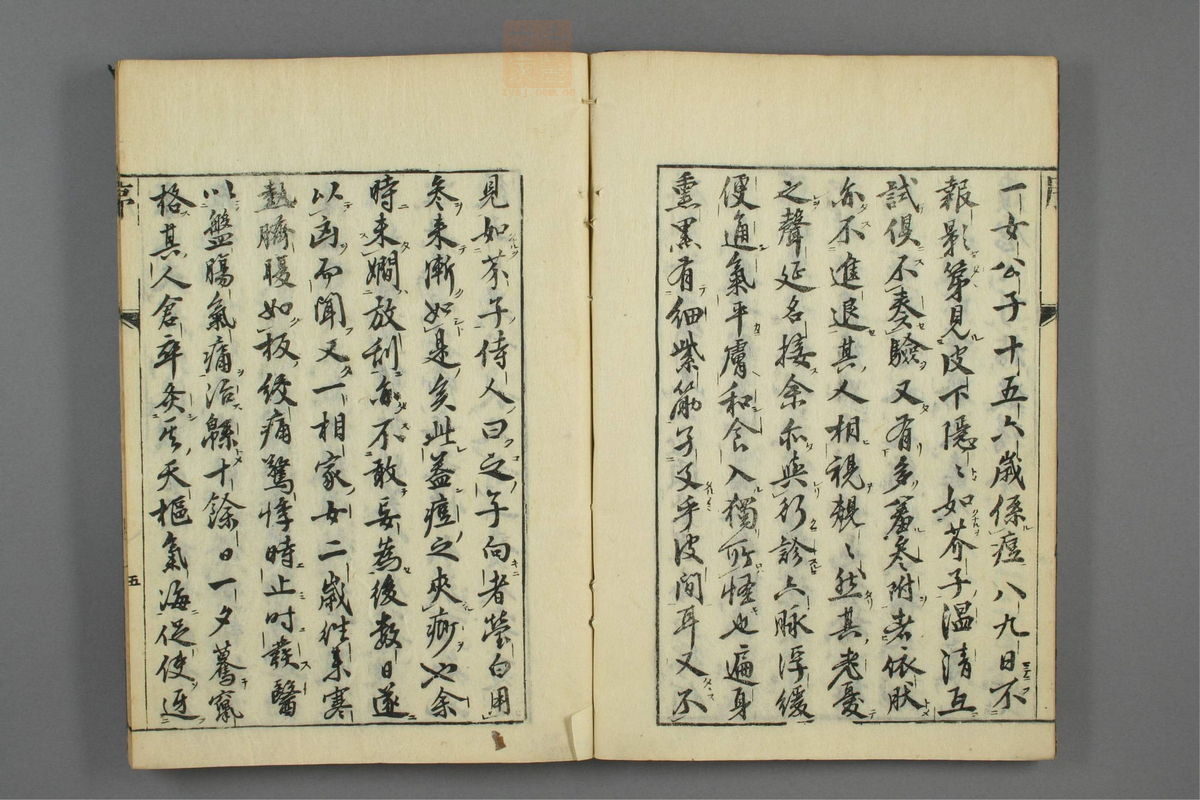 一女公子十五六歳係痘八九日不
報影第見皮下隱〻如芥子温清互
試俱不奏驗又有多羞參附者依肰
亦不進退其人相視覩〻然其老憂
之聲延名接余亦與診六脉浮緩
便通氣平膚和食入獨所怪也遍身
熏黒有細紫筋子叉乎皮間耳又不
見如芥子侍人曰之午向者瑩白用
參来漸如是矣此蓋痘之夾痧也余
時未嫺放刮亦不敢妄爲後數日遂
以凶而聞又一相家女二歳許系寒
熱臍腹如板絞痛驚悸時止時發醫
以盤膓氣痛治緜十餘日一夕驀竄
格其人倉卒灸其天樞氣海促使迓
序
五